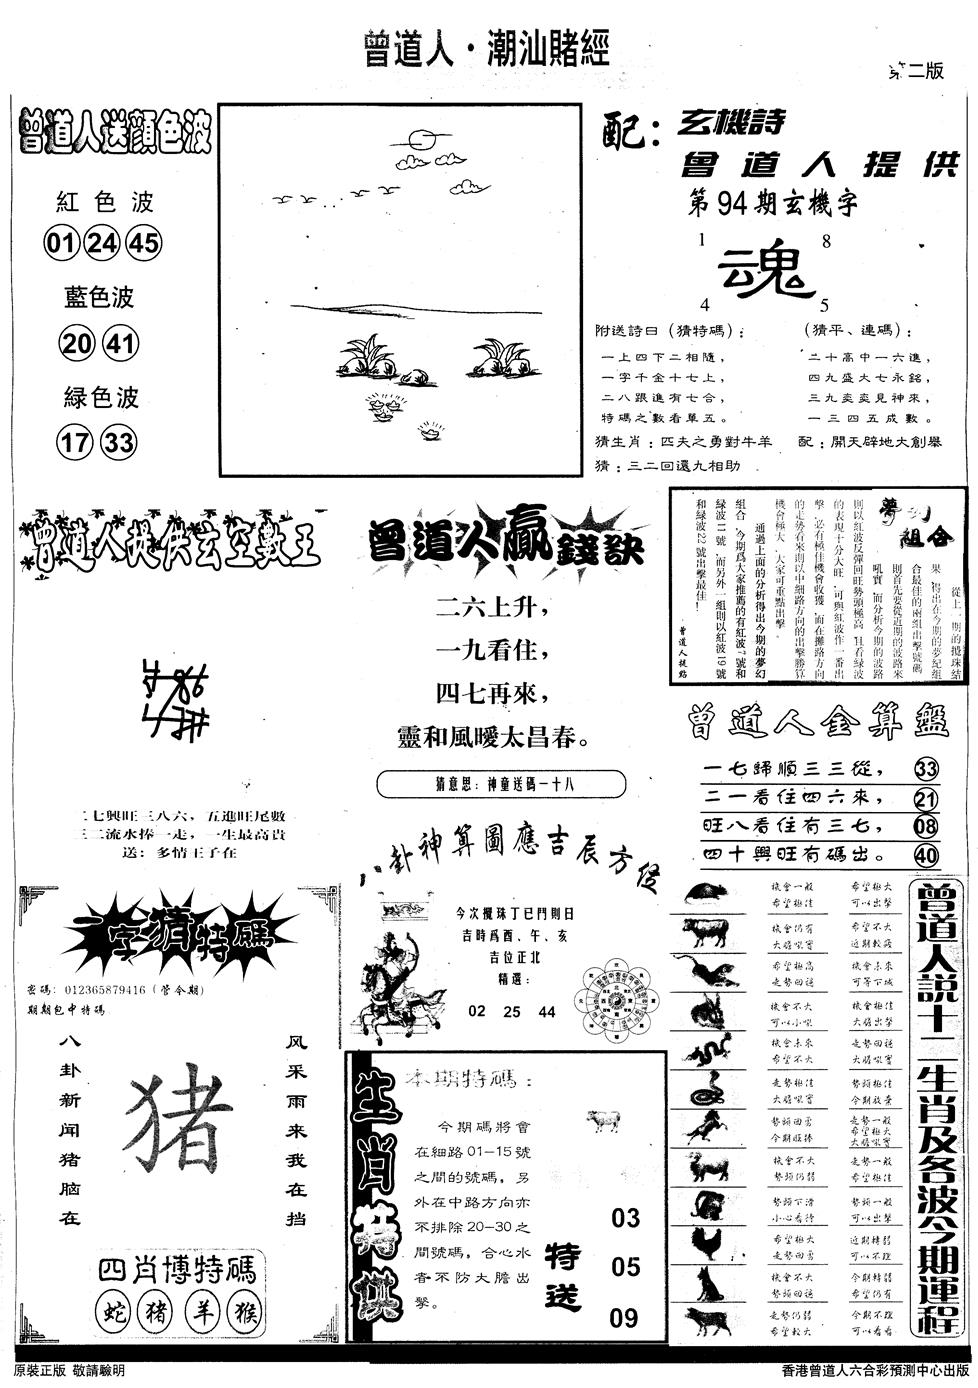 曾道人·潮汕賭經
第二版
曾道人送顏色波
紅色波
01 24 45
藍色波
20 41
緑色波
17 33
配：玄機詩
曾道人提供
第94期玄機字
1 8
魂
4 5
附送詩曰（猜特碼）：
一上四下二相隨，
一字千金十七上，
二八跟進有七合，
特碼之數看單五。
（猜平、連碼）：
二十高中一六進，
四九盛大七永銘，
三九奕奕見神來，
一三四五成數。
猜生肖：四夫之勇對牛羊
配：開天辟地大創舉
猜：三二回還九相助
曾道人提供玄空數王
二七興旺三八六，五進旺尾數
三二流水捧一走，一生最高貴
送：多情王子在
曾道人贏錢訣
二六上升，
一九看住，
四七再來，
靈和風曖太昌春。
猜意思：神童送碼一十八
夢幻組合
從上一期的攪珠結
果，得出在今期的夢紀組
合最佳的兩組出擊號碼
則首先要從近期的波路來
吼實，而分析今期的波路
則以紅波反彈回旺勢頭極高，且看緑波
的表現十分大旺，可與紅波作一番出
擊，必有極佳機會收獲，而在攤路方向
的走勢看來則以中細路方向的出擊勝算
機會極大，大家可重點出擊。
通過上面的分析得出今期的夢幻
組合，今期爲大家推薦的有紅波7號和
緑波11號，而另外一組則以紅波19號
和緑波22號出擊最佳！
曾道人提點
曾道人金算盤
一七歸順三三從， 33
二一看住四六來， 21
旺八看住有三七， 08
四十興旺有碼出。 40
八卦神算圖應吉辰方位
今次攪珠丁巳門則日
吉時爲酉、午、亥
吉位正北
精選：
02 25 44
一字猜特碼
密碼：012365879416（管今期）
期期包中特碼
八卦新闻猪脑在
猪
风采雨来我在挡
四肖博特碼
蛇 猪 羊 猴
生肖特供
本期特碼：
今期碼將會
在細路01-15號
之間的號碼，另
外在中路方向亦
不排除20-30之
間號碼，合心水
者不防大膽出
擊。
特送
03
05
09
曾道人説十二生肖及各波今期運程
機會一般 希望極大
希望極佳 可以出擊
機會仍有 希望不大
大膽吼實 近期較弱
希望極高 機會未來
走勢回穩 可等下城
機會不大 機會極佳
可以小吼 大膽出擊
機會未來 走勢回穩
希望不大 大膽吼實
走勢極佳 勢頭極佳
大膽吼實 今期放棄
勢頭回勇 走勢一般
今期旺捧 希望極大
大膽吼實
機會不大 走勢一般
勢頭仍弱 希望極佳
勢頭下滑 勢頭一般
小心看待 可以出擊
希望極大 近期轉弱
走勢回勇 可以不理
機會不大 今期轉弱
勢頭回穩 希望仍有
走勢仍弱 今期不理
希望較大 可以看看
原裝正版 敬請驗明
香港曾道人六合彩預測中心出版